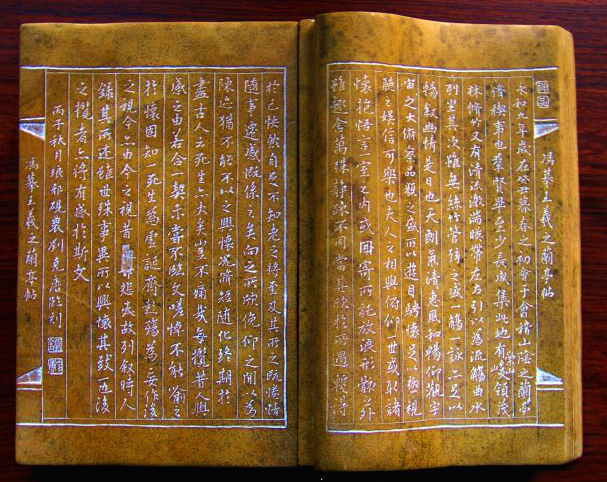 馮摹王羲之蘭亭帖
永和九年歲在癸丑暮春之初會于會稽山陰之蘭亭
脩稧事也群賢畢至少長咸集此地有崇山峻領茂
林脩竹又有清流激湍暎帶左右引以為流觴曲水
列坐其次雖無絲竹管弦之盛一觴一詠亦足以
暢敘幽情是日也天朗氣清惠風和暢仰觀宇
宙之大俯察品類之盛所以遊目騁懷足以極視
聽之娛信可樂也夫人之相與俯仰一世或取諸
懷抱悟言一室之内或因寄所託放浪形骸之外
雖趣舍萬殊靜躁不同當其欣於所遇蹔得
於己快然自足不知老之將至及其所之既惓情
隨事遷感慨係之矣向之所欣俛仰之閒以為
陳迹猶不能不以之興懷況脩短隨化終期於
盡古人云死生亦大矣豈不痛哉每攬昔人興
感之由若合一契未嘗不臨文嗟悼不能喻之
於懷固知一死生為虛誕齊彭殤為妄作後
之視今亦由今之視昔悲夫故列敘時人
錄其所述雖世殊事異所以興懷其致一也後
之攬者亦將有感於斯文
丙子秋月琅邪硯農刘克唐臨刻
馮摹王羲之蘭亭帖